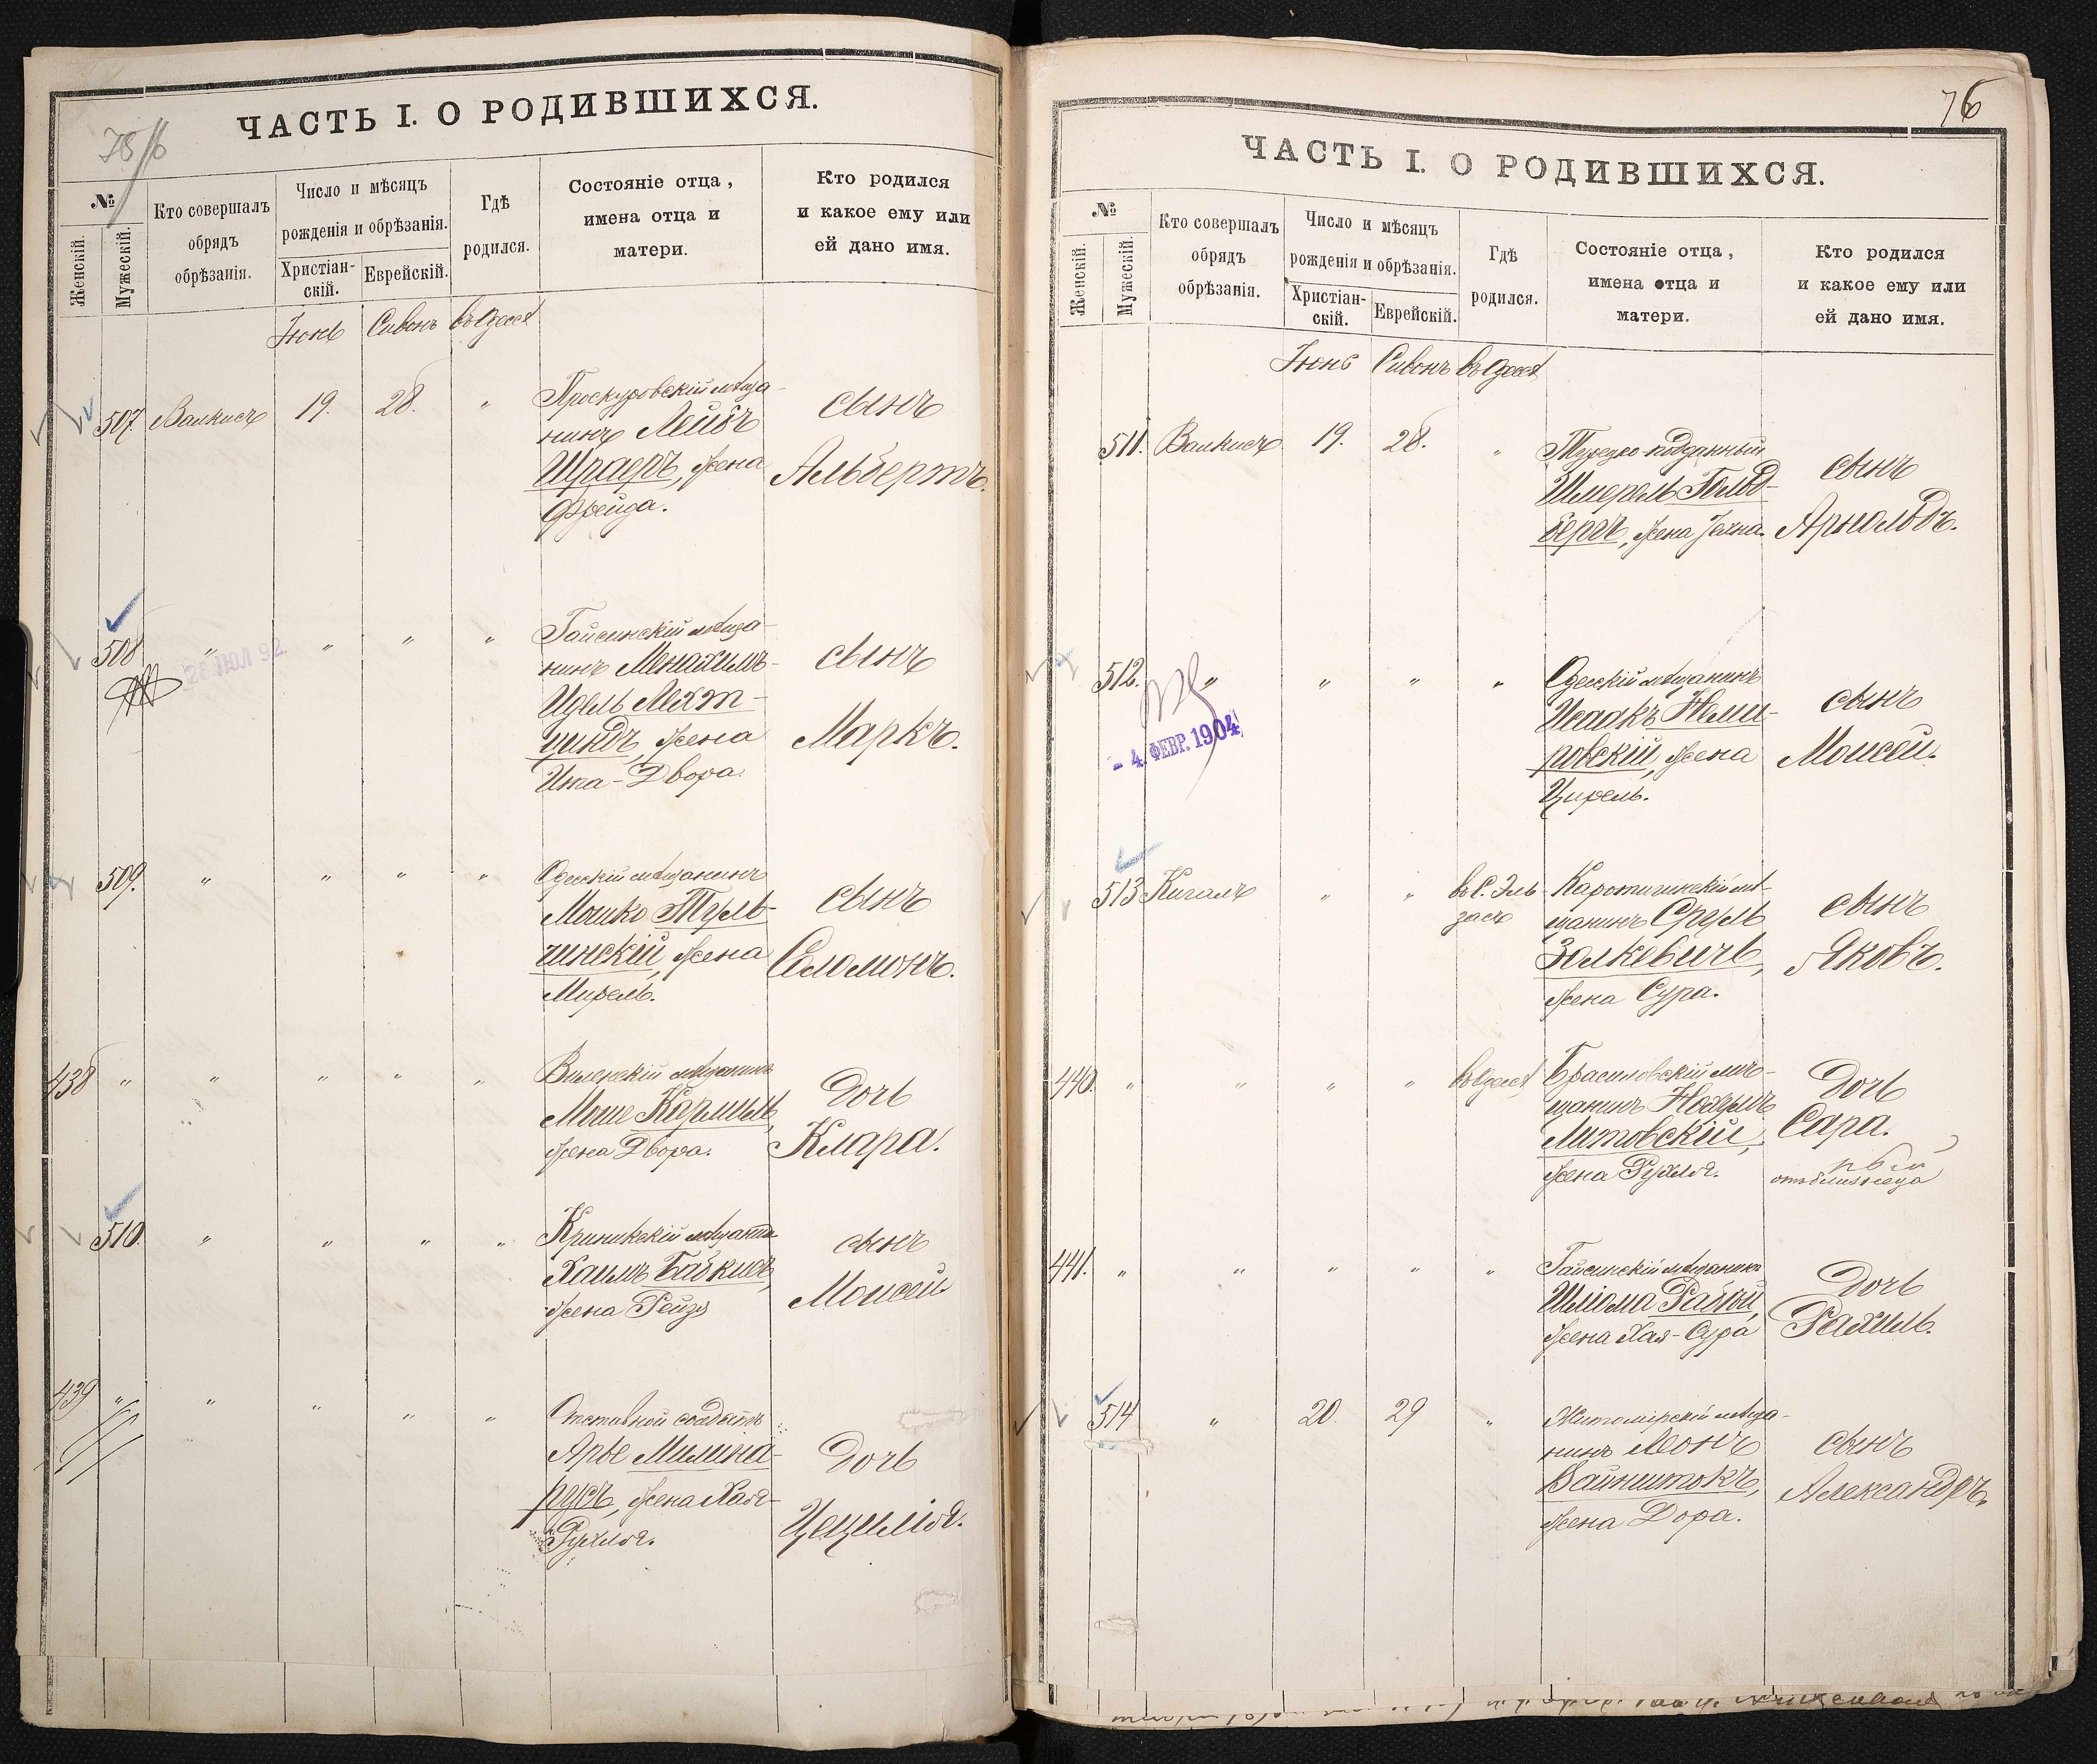 ЧАСТЬ I. О РОДИВШИХСЯ.
№
Женскій.
Мужескій.
Кто совершалъ
обрядъ
обрѣзанія.
Число и мѣсяцъ
рожденія и обрѣзанія.
Христіан-
скій.
Еврейскій.
Гдѣ
родился.
Состояніе отца,
имена отца и
матери.
Кто родился
и какое ему или
ей дано имя.
Іюнь Сивонъ въ Одессѣ
507 19. 28. " Проскуровскій мѣща-
нинъ Лейбъ
Шраеръ, жена
Фрейда.
сынъ
Альбертъ.
508 " " " " Гайсинскій мѣща-
нинъ Менахимъ-
Идель Лехт-
циндъ, жена
Ита-Двора.
сынъ
Маркъ.
28 ІЮЛ 92
509. " " " " Одесскій мѣщанинъ
Мошко Туль-
чинскій, жена
Мирель.
сынъ
Соломонъ.
438 " " " " " Виленскій мѣщанинъ
Моше Кармель,
жена Двора.
дочь
Клара.
510. " " " " Крынкскій мѣщанинъ
Хаимъ
жена Рейзя
сынъ
Моисей
439 " " " " " Отставной солдатъ
Арье Милина-
русъ, жена Хая-
Рухля.
дочь
Цецилія.
76
ЧАСТЬ I. О РОДИВШИХСЯ.
№
Женскій.
Мужескій.
Кто совершалъ
обрядъ
обрѣзанія.
Число и мѣсяцъ
рожденія и обрѣзанія.
Христіан-
скій.
Еврейскій.
Гдѣ
родился.
Состояніе отца,
имена отца и
матери.
Кто родился
и какое ему или
ей дано имя.
Іюнь Сивонъ въ Одессѣ
511. 19. 28. " Турецко-подданный
Шмерель Гольд-
бергъ, жена
сынъ
Арнольдъ.
512. " " " " Одесскій мѣщанинъ
Исаакъ Неми-
ровскій, жена
Цирель.
сынъ
Моисей.
- 4. ФЕВР. 1904
513 Кигалъ " " въ С. Эль-
засъ
мѣ-
щанинъ Сруль
Залкевичъ,
жена Сура.
сынъ
Яковъ.
440. " " " " въ Одессѣ
Брасиловскій мѣ-
щанинъ Нохумъ
Литовскій,
жена Рухля.
дочь
Сара.
441. " " " " " Гайсинскій мѣщанинъ
Шліома Рабой,
жена Хая-Сура
дочь
Рахиль.
514 " 20. 29 " Житомірскій мѣща-
нинъ Леонъ
Вайнштокъ,
жена Дора.
сынъ
Александръ.